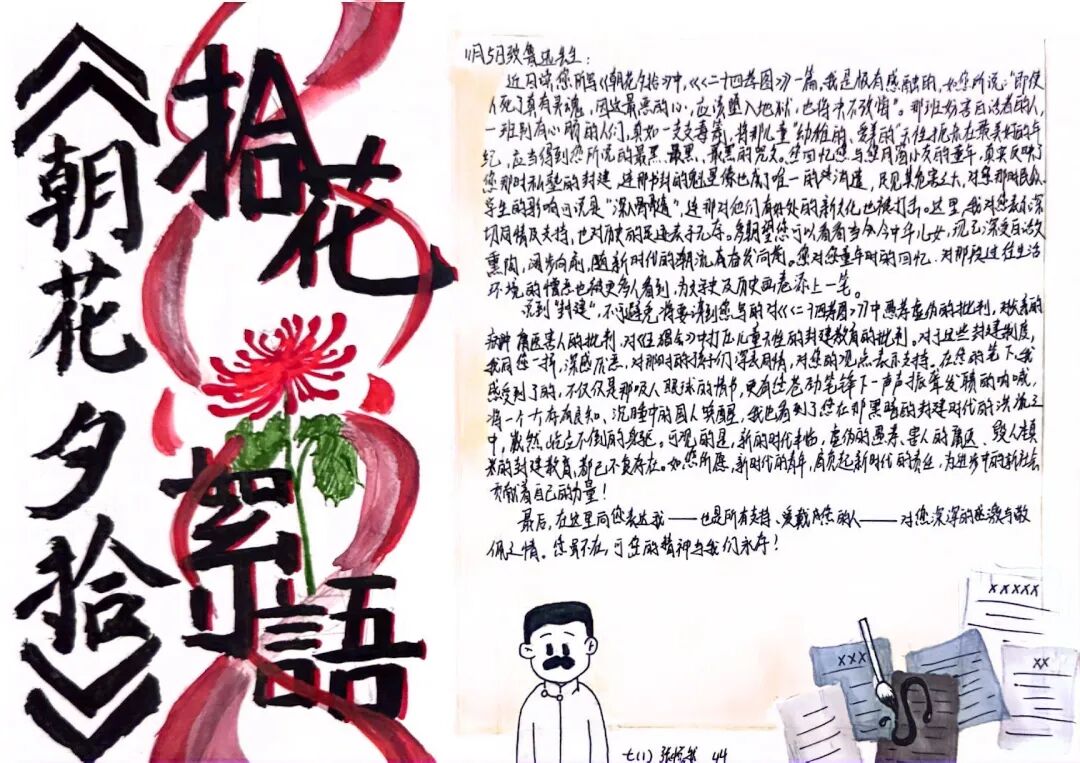 《朝花夕拾》
拾花
絮語
11月5日致鲁迅先生：
近日读您所写《朝花夕拾》中，《二十四孝图》一篇，我是很有感触的，如您所说：“即使
人死了真有灵魂，因这最恶的心，应该堕入地狱，也将决不改悔”。那班妨害白话者的人，
一班别有心肠的人们，真如一支支毒箭，将那儿童“幼稚的、爱美的”天性扼杀在最美好的年
纪，应当得到您所说的最黑、最黑、最黑的咒文。您回忆您与您同窗小友的童年，真实反映了
您那时私塾的封建，连那书封的魁星像也成了唯一的
，足见其危害之大，对您那时民众
学生的影响可说是“深入骨髓”，连那对他们有好处的新文化也被打击。这里，我对您表示深
切同情及支持，也对历史的足迹表示
。多期望您可以看看当今今中华儿女，现已深受白话文
熏陶，阔步向前，随新时代的潮流奋发向前。您对您童年时的回忆，对那段过往生活
环境的情态也被更多人看到，为文学史及历史画卷添上一笔。
说到“封建”，不可避免将要讲到您写的对《二十四孝图》中愚孝虚伪的批判，对《父亲的
病》庸医害人的批判，对《五猖会》中打压儿童天性的封建教育的批判，对于这些封建制度，
我同您一样，深感厌恶，对那时的孩子们深表同情，对您的观点表示支持。在您的笔下，我
感受到了的，不仅仅是那吸人眼球的情节，更有在苍劲笔锋下一声声振聋发聩的呐喊，
将一个个存有良知、沉睡中的国人唤醒，我也看到了您在那黑暗的封建时代的洪流之
中，毅然屹立不倒的身躯，可观的是，新的时代来临，虚伪的愚孝、害人的庸医、毁人
的封建教育，都已不复存在。如您所愿，新时代的青年，肩负起新时代的责任，为进步中的新社会
贡献着自己的力量！
最后，在这里向您表达我——也是所有支持、爱戴及您的人——对您深深的感激与敬
佩之情。您虽不在，可您的精神与我们永存！
XXXXX
XXX
XX
七(1) 张
44